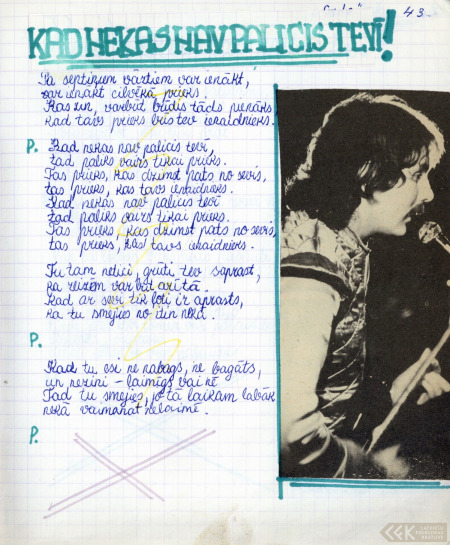 43.
KAD NEKAS NAV PALICIS TEVĪ!
Pa septiņiem vārtiem var ienākt,
var ienākt cilvēkā prieks.
Kas zin, varbūt brīdis tāds pienāks
kad tavs prieks būs tev ienaidnieks.
P. Kad nekas nav palicis tevī,
tad paliks vairs tikai prieks.
Tas prieks, kas dzimst pats no sevis,
tas prieks, kas tavs ienaidnieks.
Kad nekas nav palicis tevī
tad paliks vairs tikai prieks.
Tas prieks kas dzimst pats no sevis,
tas prieks, kas tavs ienaidnieks.
Tu tam netici, grūti tev saprast,
ka reizēm var būt arī tā.
Kad ar sevi tik ļoti ir aprasts,
ka tu smejies no itin nekā.
P.
Kad tu esi ne nabags, ne bagāts,
un nezini – laimīgs vai nē
Tad tu smejies, jo tā laikam labāk
nekā vaimanāt nelaimē.
P.
LATVIEŠU
FOLKLORAS
KRĀTUVE